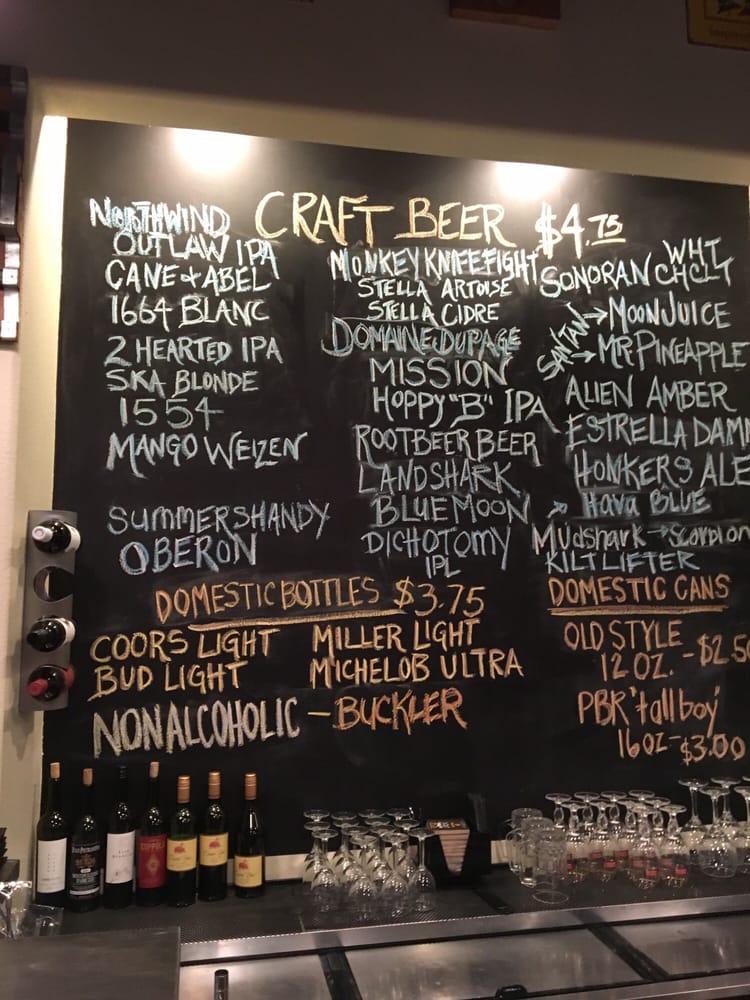 CRAFT BEER $4.75
NORTHWIND
OUTLAW IPA
CANE & ABEL
1664 BLANC
2 HEARTED IPA
SKA BLONDE
1554
MANGO WEIZEN
SUMMERSHANDY
OBERON
MONKEY KNIFE FIGHT
STELLA ARTOISE
STELLA CIDRE
DOMAINE DUPAGE
MISSION
HOPPY "B" IPA
ROOTBEER BEER
LANDSHARK
BLUE MOON
DICHOTOMY
IPL
SONORAN WHT CHCLT
SANTAN → MOONJUICE
→ MR PINEAPPLE
ALIEN AMBER
ESTRELLA DAMM
HONKERS ALE
→ Hava BLUE
Mudshark → Scorpion
KILTLIFTER
DOMESTIC BOTTLES $3.75
COORS LIGHT MILLER LIGHT
BUD LIGHT MICHELOB ULTRA
NON ALCOHOLIC - BUCKLER
DOMESTIC CANS
OLD STYLE
12 OZ. - $2.50
PBR 'tall boy'
16oz - $3.00
COPPOLA